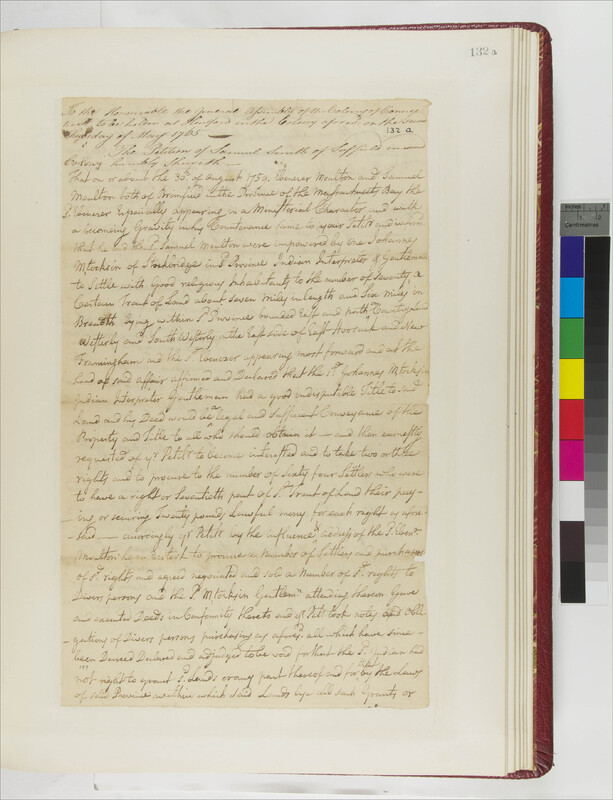 132a
To the Honourable the General Assembly of the Colony of Connec
ticut to be holden at Hartford in the Colony afores.d on the Second
Thursday of May 1765
132 a
The Petition of Samuel Smith of Suffield in
Colony humbly Sheweth
That on or about the 30th of August 1750. Ebenezer Moulton and Samuel
Moulton both of Brimfield in the Province of the Massachusetts Bay the
sd Ebenezer Especially appearing in a Ministerial Character and with
a becoming Gravity in his Countenance came to your Petitr and inform'd
that he and the sd Samuel Moulton were impowered by one Johannes
Mtocksin of Stockbridge in sd Province Indian Interpreter & Gentleman
to Settle with good religious Inhabitants to the number of Seventy a
Certain Tract of Land about Seven Miles in Length and Six Miles in
Breadth lying within sd Province bounded East and North Country Land
Westerly and South Westerly on the East side of East Hoosuck and New
Framingham and the sd Ebenezer appearing most forward and at the
head of said affair affirmed and Declared that the sd Johannes Mtocksin
Indian Interpreter Gentleman had a good indisputable Title to said
Land and his Deed would be legal and Sufficient Conveyance of the
Property and Title to all who should obtain it — and then earnestly
requested of yr Petitr to become interested and to take two or three
rights and to procure to the number of Sixty four Settlers who were
to have a right or Seventieth part of sd Tract of Land their pay-
-ing or securing Twenty pounds Lawful money for each right as afore-
-said — accordingly yr Petitr by the influence & advice of the sd Ebenr
Moulton he undertook to procure a Number of Settlers and purchasers
of sd rights and agreed negotiated and sold a Number of sd rights to
Divers persons and the sd Mtocksin Gentlemn attending thereon Gave
and executed Deeds in Conformity thereto and yr Petr took notes and Obli
-gations of Divers persons purchasing as aforesd. all which have since
been Decreed Declared and adjudged to be void for that the sd Indian had
not right to grant sd Lands or any part thereof and for that by the Laws
of said Province within which said Lands lye all such Grants or